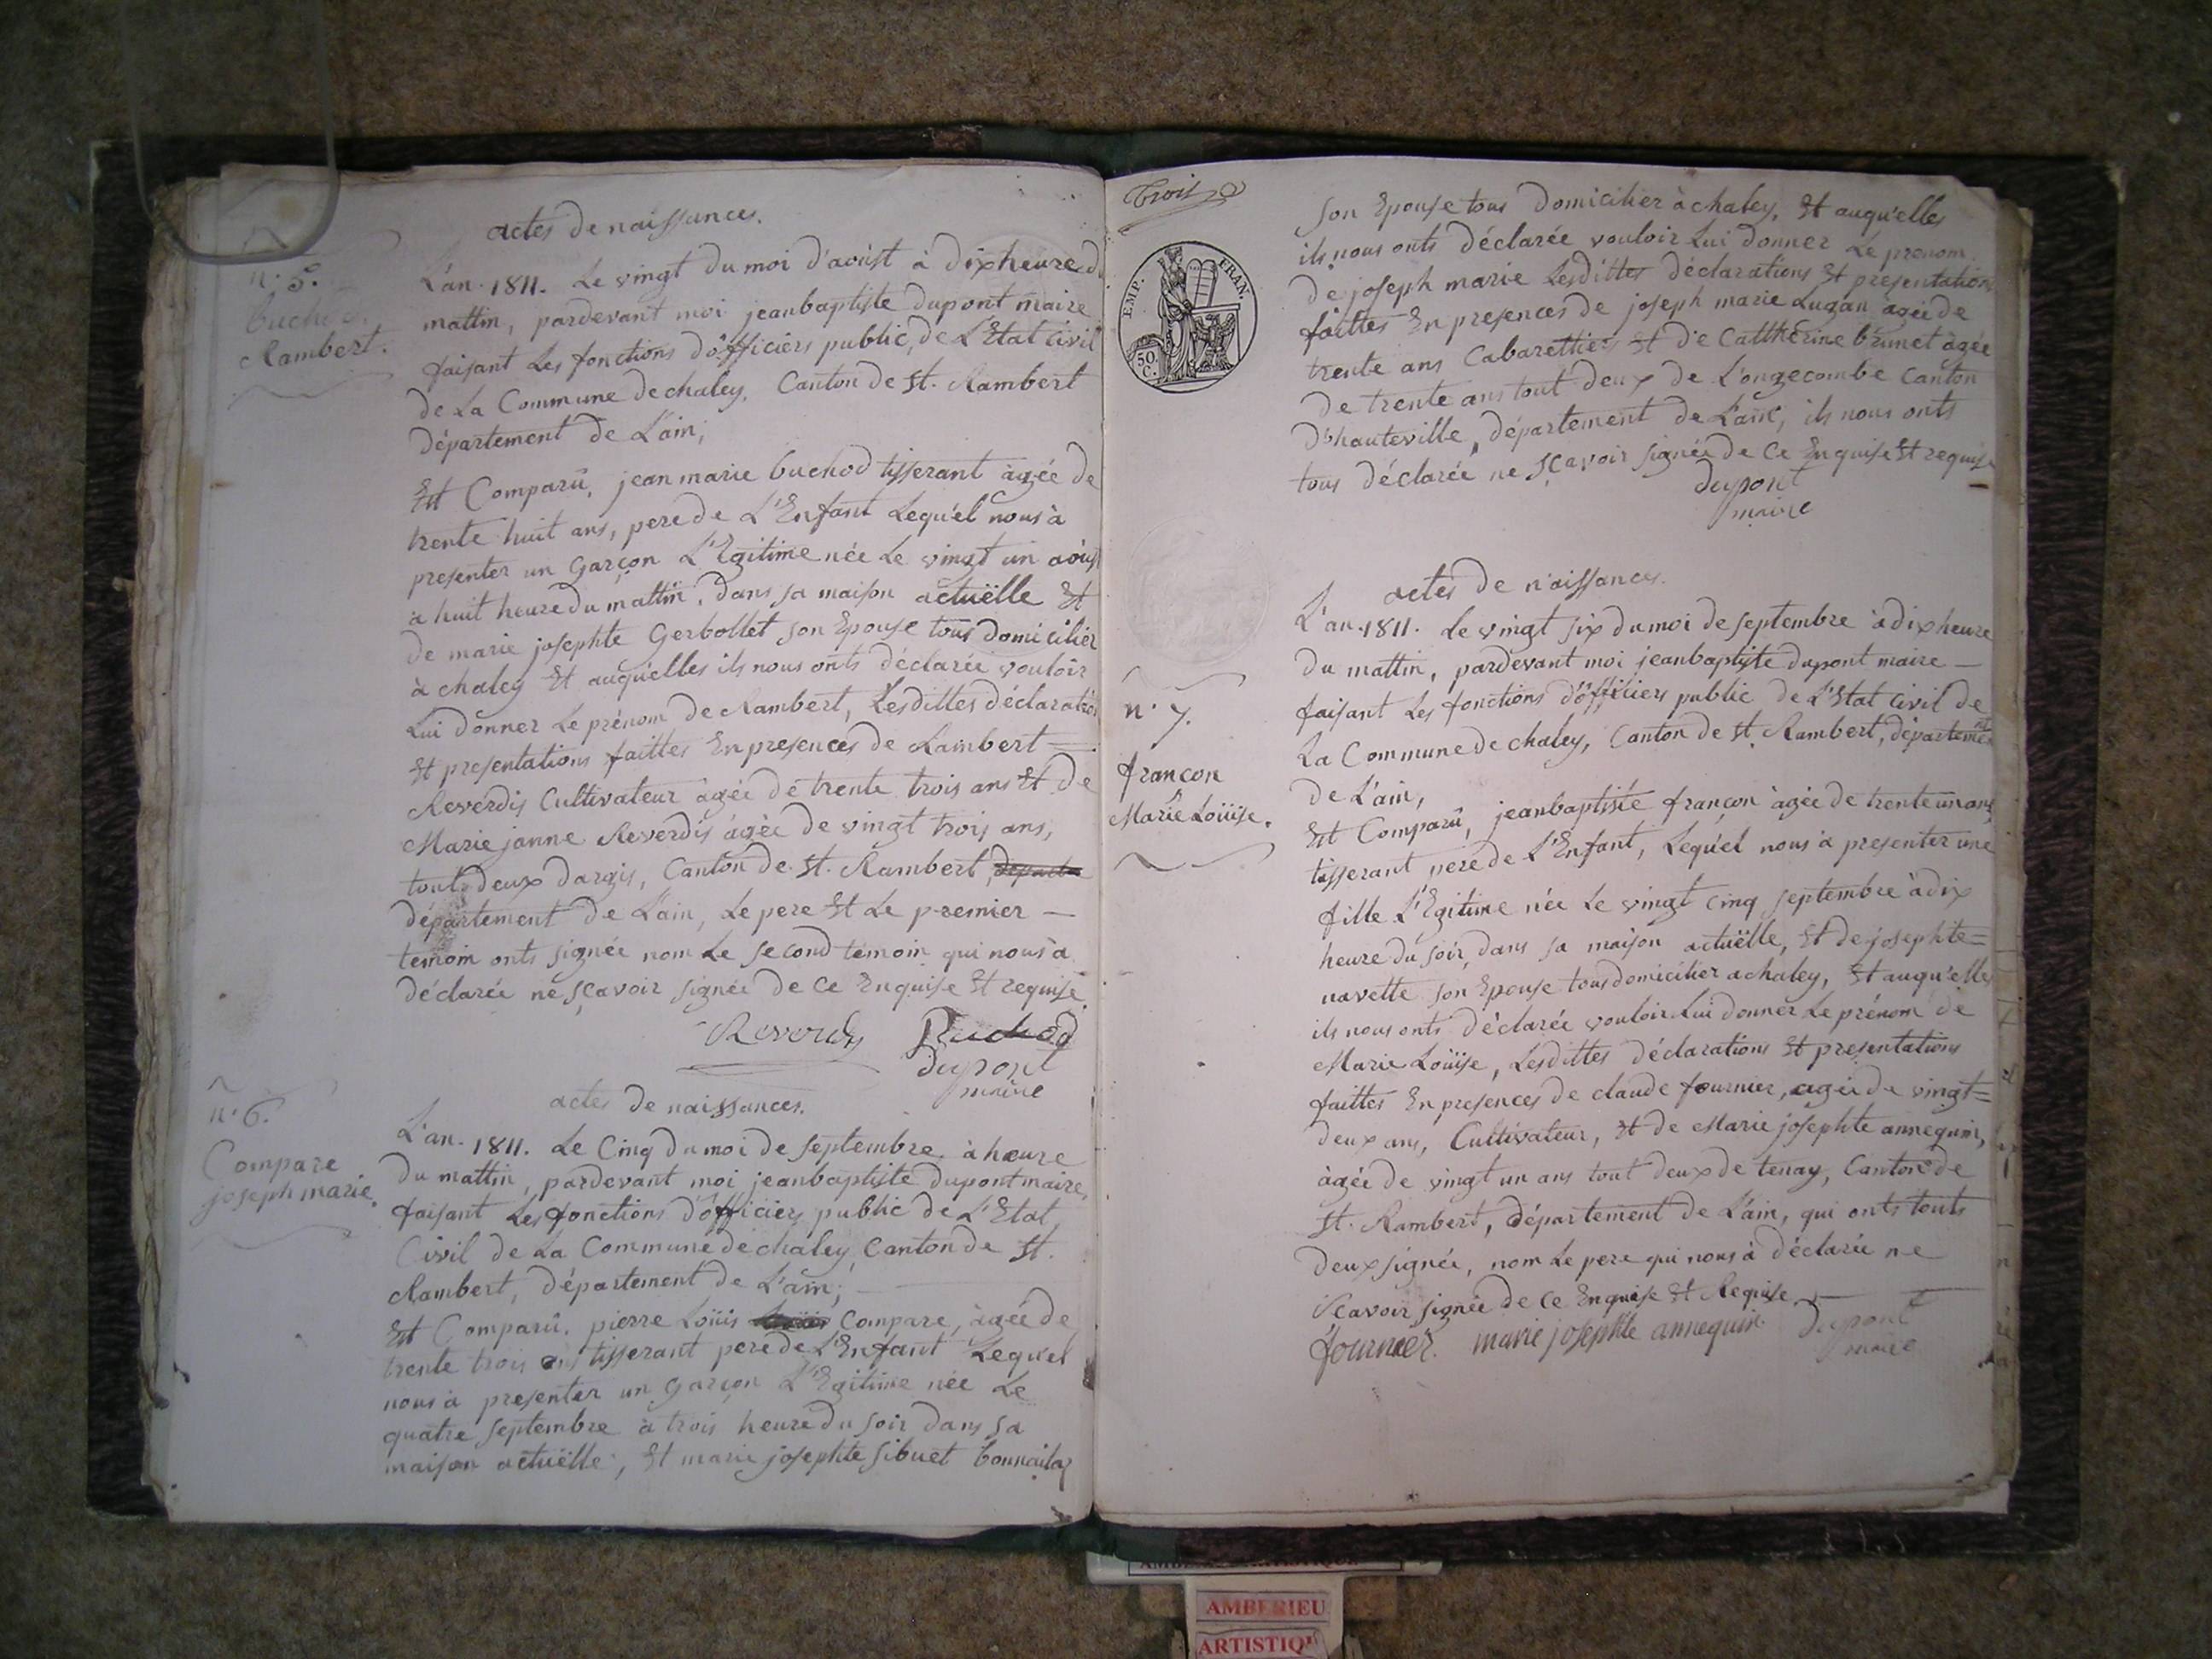 actes de naissances.
n.° 5.
buchod
Rambert.
L'an. 1811. Le vingt du moi d'aoûst à dix heure d
mattin, pardevant moi jeanbaptiste dupont maire
faisant Les fonctions d'officiers public, de L'Etat Civil
de La Commune de chaley, Canton de St. Rambert
département de L'ain,
Est Comparû, jean marie buchod tisserant àgée de
trente huit ans, pere de L'Enfant Lequ'el nous à
presenter un Garçon L'Egitime née Le vingt un aoûs
à huit heure du mattin, dans sa maison actuëlle Et
de marie josephte Gerbollet son Epouse tous domicilier
à chaley Et auqu'elles ils nous onts déclarée vouloir
Lui donner Le prénom de Rambert, Lesdittes déclaration
Et presentations faittes En presences de Rambert =
Reverdis Cultivateur àgée de trente trois ans Et de
Marie janne Reverdis àgée de vingt trois ans,
tout deux dargis, Canton de St. Rambert, departe
département de L'ain, Le pere Et Le premier —
temoin onts signée nom Le second témoin qui nous à
déclarée ne sçavoir signée de Ce Enquise Et requise.
Reverdy Buchod
dupont
maire
actes de naissances.
n.° 6.
Compare
joseph marie.
L'an. 1811. Le Cinq du moi de septembre, à heure
du mattin, pardevant moi jeanbaptiste dupont maire,
faisant Les fonctions d'officiers public de L'Etat
Civil de La Commune de chaley, Canton de St.
Rambert, département de L'ain;
Est Comparû. pierre Loüis Loüis Compare, àgée de
trente trois ans tisserant pere de L'Enfant Lequ'el
nous à presenter un Garçon L'Egitime née Le
quatre septembre à trois heure du soir dans sa
maison actuëlle, Et marie josephte sibuet bonnaitaz
trois
EMP. FRAN.
50 C.
son Epouse tous domicilier à chaley, Et auqu'elles
ils nous onts déclarée vouloir Lui donner Le prenom
de joseph marie Lesdittes déclarations Et presentations
faittes En presences de joseph marie Lugan àgée de
trente ans Cabarettiers Et de Catthérine brunet àgée
de trente ans tout deux de L'ongecombe Canton
D'hauteville, département de L'ain, ils nous onts
tous déclarée ne sçavoir signée de Ce Enquise Et requise
dupont
maire
actes de naissances.
L'an. 1811. Le vingt six du moi de septembre à dix heure
du mattin, pardevant moi jeanbaptiste dupont maire —
faisant Les fonctions d'officiers public de L'Etat Civil de
La Commune de chaley, Canton de St. Rambert, département
de L'ain,
n.° 7.
françon
Marie Loüise.
Est Comparû, jeanbaptiste françon àgée de trente un ans
tisserant pere de L'Enfant, Lequ'el nous à presenter une
fille L'Egitime née Le vingt Cinq septembre à dix
heure du soir, dans sa maison actuëlle, Et de josephte =
navette son Epouse tous domicilier a chaley, Et auqu'elles
ils nous onts déclarée vouloir Lui donner Le prénom de
Marie Loüise, Lesdittes déclarations Et presentations
faittes En presences de claude fournier, agée de vingt =
deux ans, Cultivateur, Et de Marie josephte annequin,
àgée de vingt un ans tout deux de tenay, Canton de
St. Rambert, département de L'ain, qui onts touts
deux signée, nom Le pere qui nous à déclarée ne
sçavoir signée de Ce Enquise Et Requise. —
fournier. marie josephte annequin. dupont
maire
AMBERIEU
ARTISTIQU